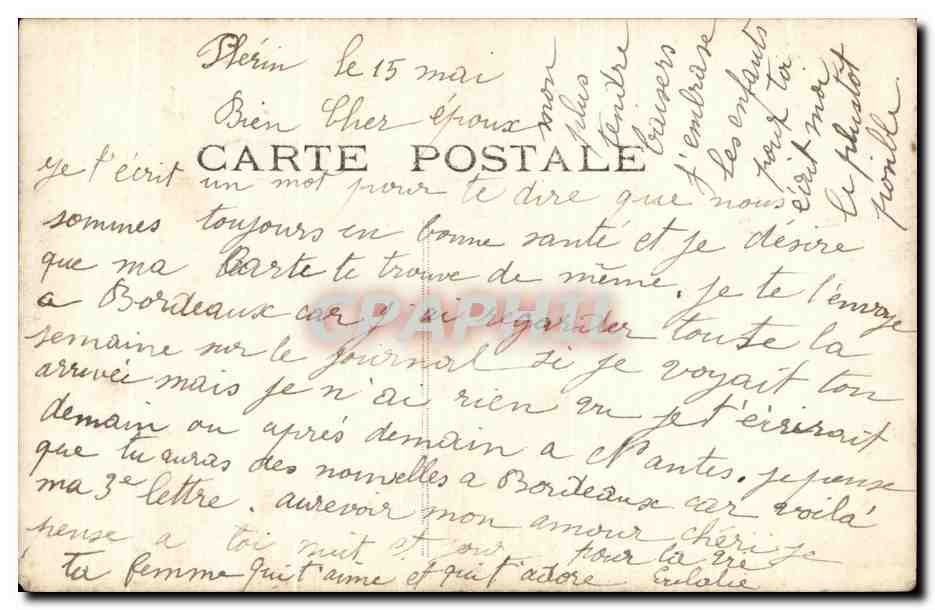 Plérin le 15 mai
Bien Cher époux
CARTE POSTALE
Je t'écrit un mot pour te dire que nous
sommes toujours en bonne santé et je désire
que ma Carte te trouve de même. je te l'envoye
a Bordeaux car j'ai regarder toute la
semaine sur le journal si je voyait ton
arrivée mais je n'ai rien vu je t'écrirait
demain ou après demain a Nantes. je pense
que tu auras des nouvelles a Bordeaux car voilà
ma 3e lettre. aurevoir mon amour chéri je
pense a toi nuit et jour pour la vie
ta femme qui t'aime et qui t'adore Eulalie
mon
plus
tendre
baisers
j'embrase
les enfants
pour toi
écrit moi
le plustot
CPAPHIL